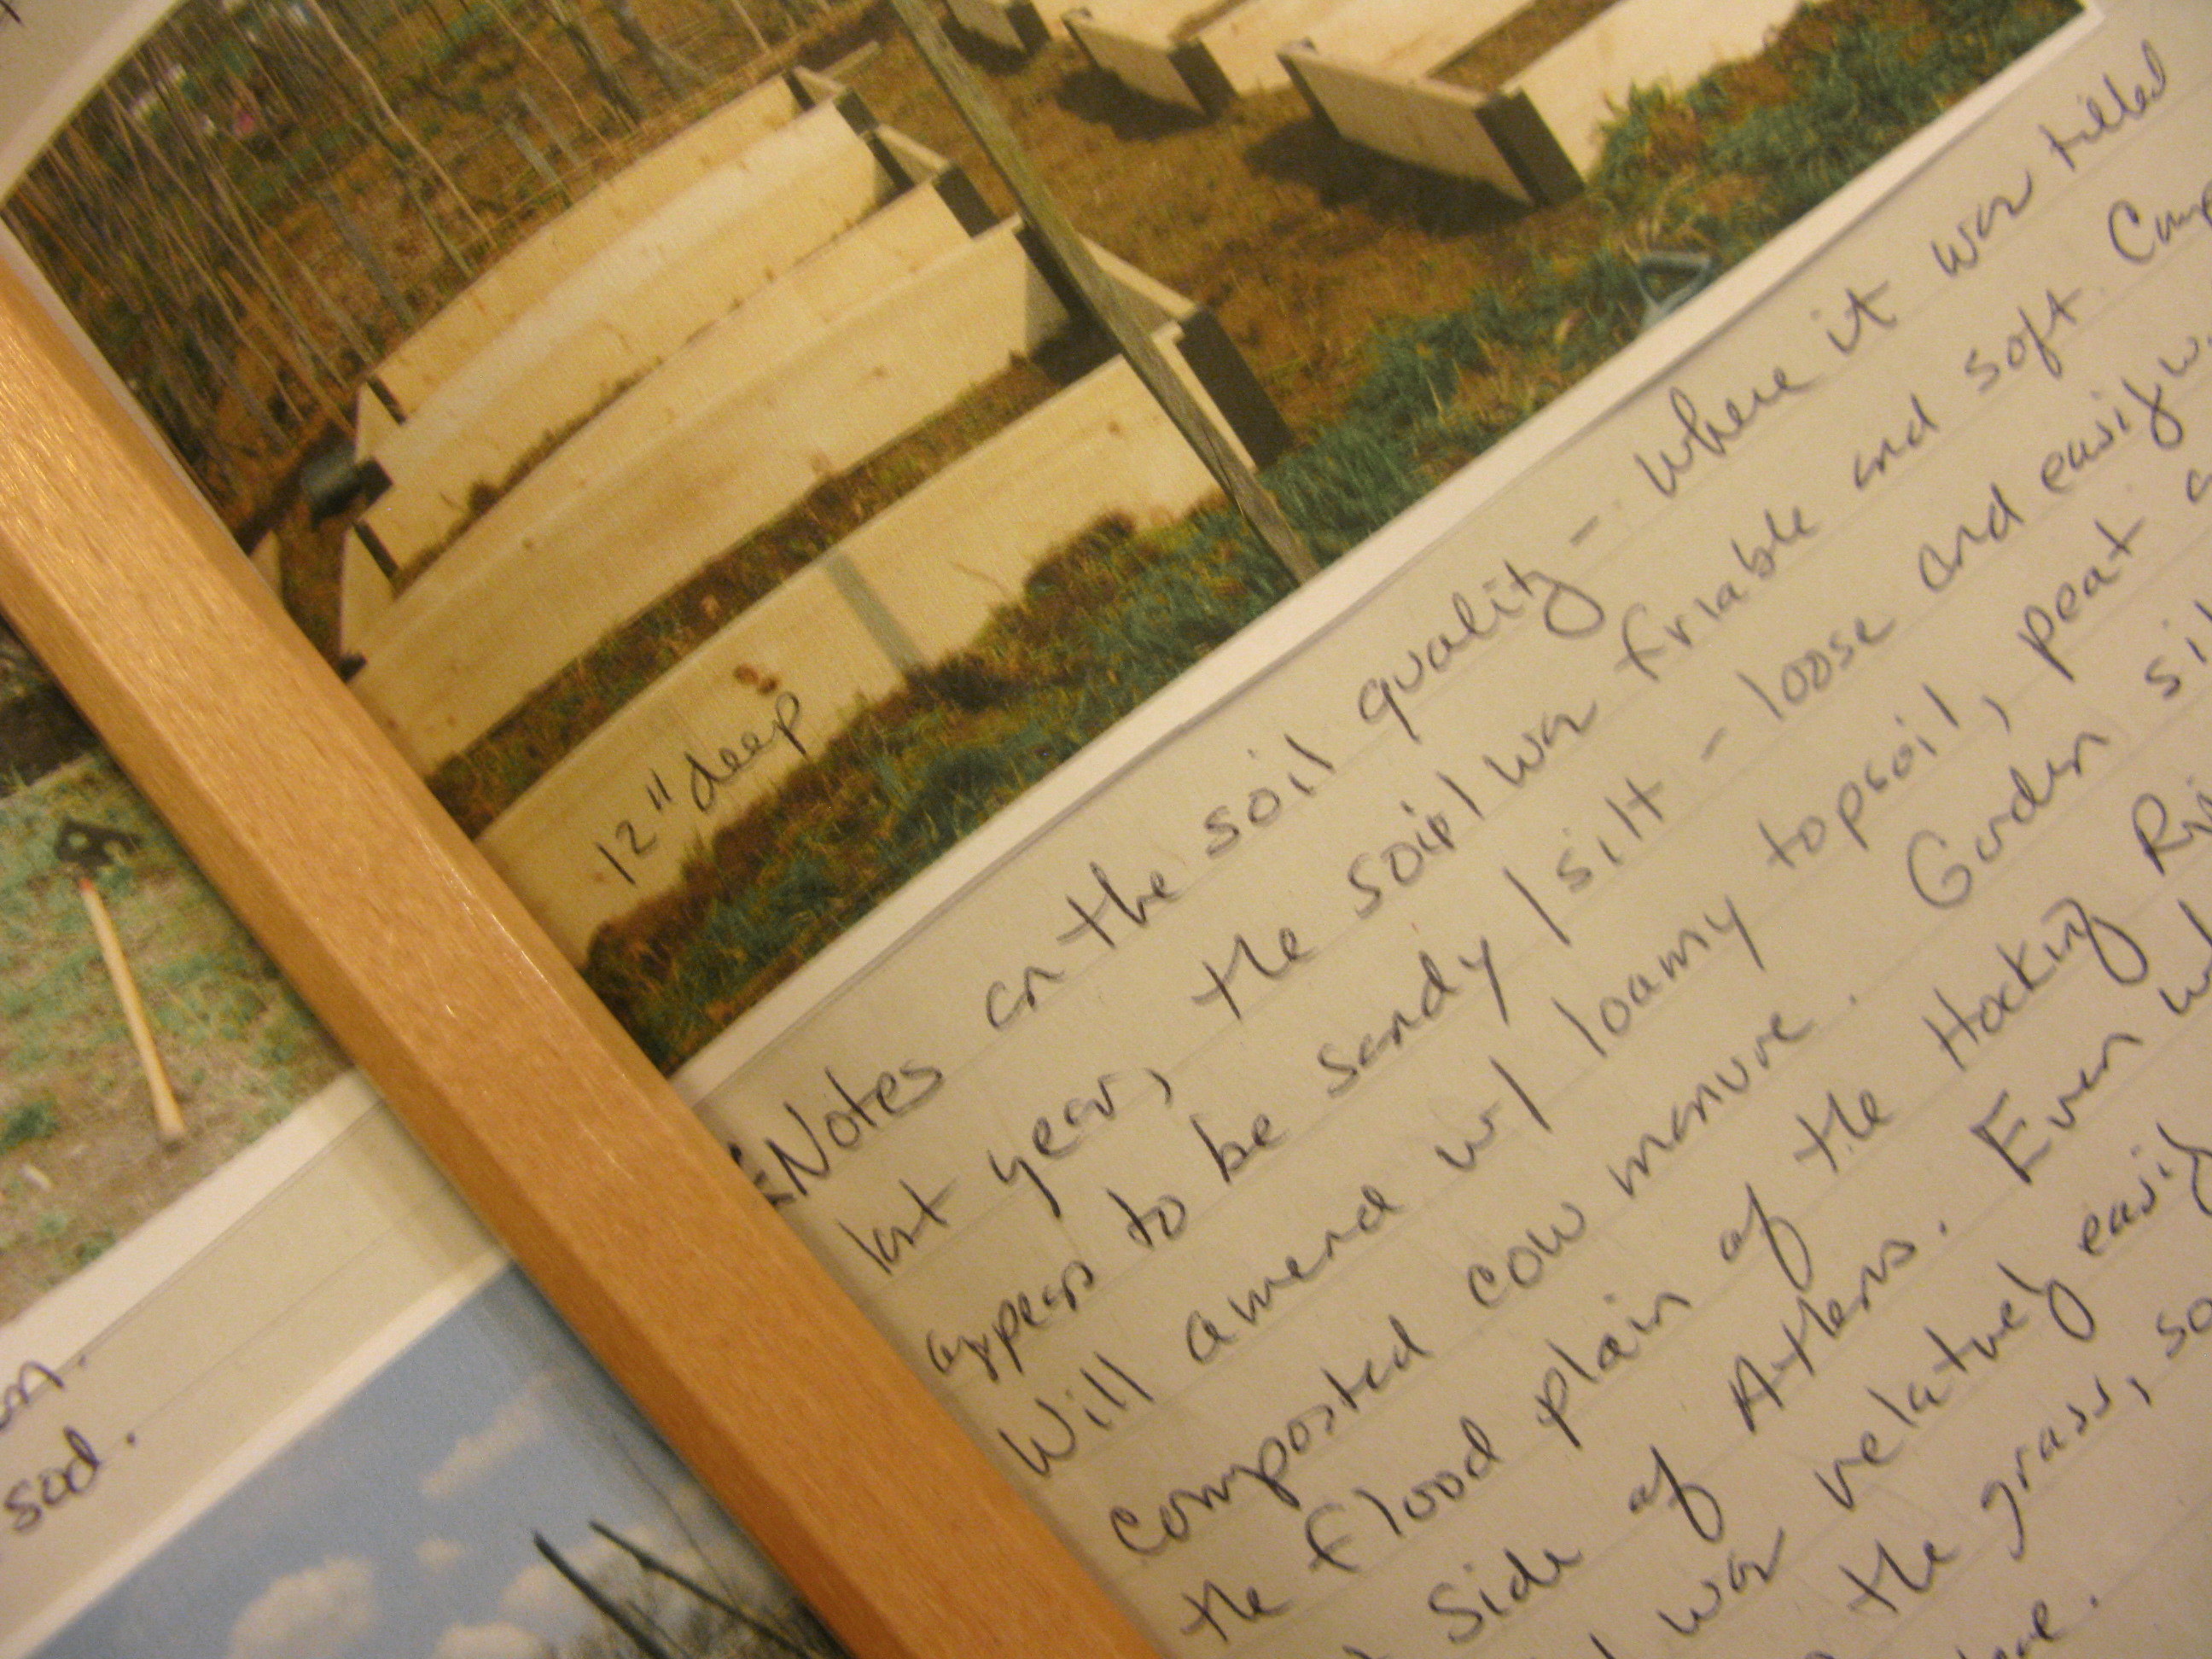 12" deep
Notes on the soil quality - where it was tilled
last year, the soil was friable and soft.
appears to be sandy/silt - loose and easily
Will amend w/ loamy topsoil, peat
composted cow manure. Garden
the flood plain of the Hocking
side of Athens. Even
was relatively easily
the grass, so
sod.